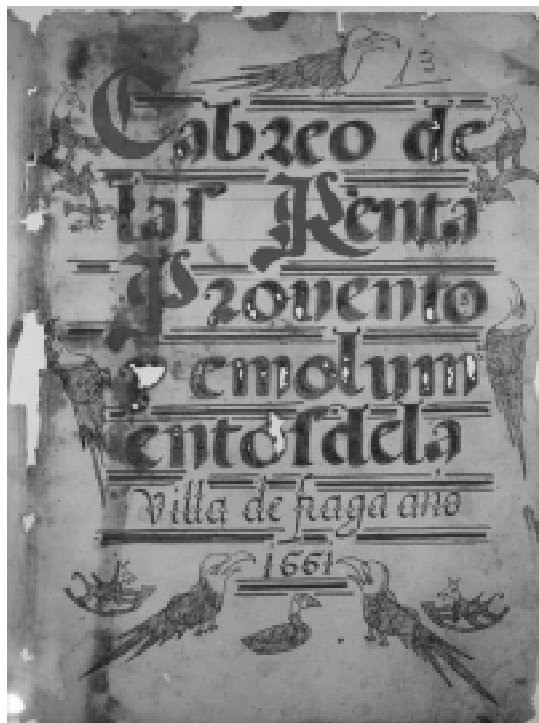 Cabreo de
las Renta
Provento
y emolum
entos dela
Villa de fraga año
1661